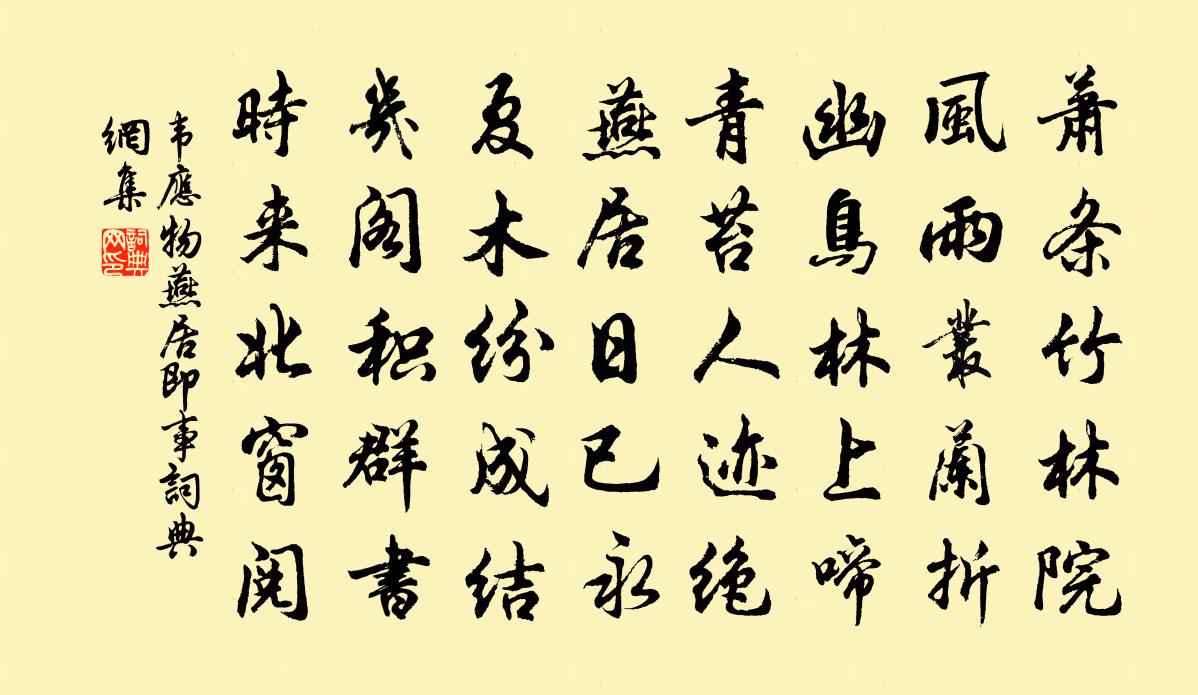 蕭条竹林院
風雨叢蘭折
幽鳥林上啼
青苔人迹绝
燕居日已永
夏木纷成结
几阁积群書
時来北窗阅
韦應物燕居即事詞典
網集
詞典
网印